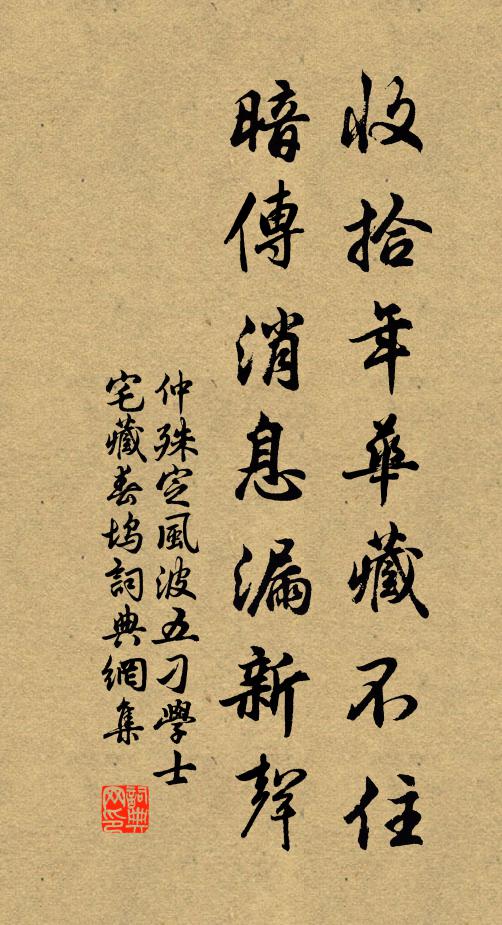 收拾年華藏不住
暗傳消息漏新聲
仲殊定風波五刁學士
宅藏春塢詞典網集
詞典网印